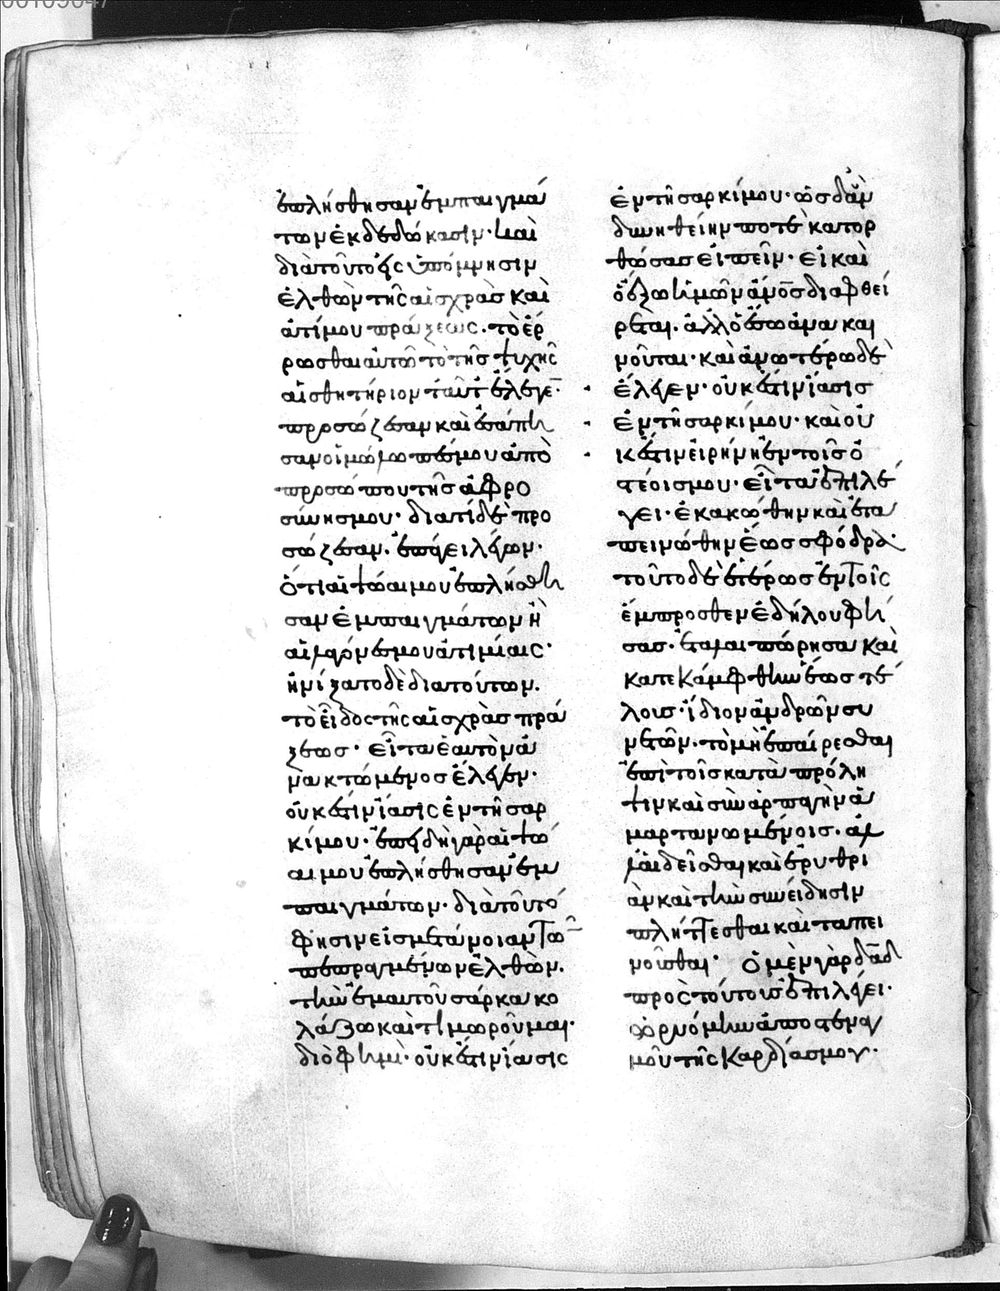 ἐπλήσθησαν ἐμπαιγμά
των ἐκδεδώκασιν· καὶ
διὰ τοῦτο εἰς ὑπόμνησιν
ἐλθὼν τῆς αἰσχρᾶς καὶ
ἀτίμου πράξεως. τὸ ἐρ
ρῶσθαι αὐτῶ τὸ τῆς ψυχῆς
αἰσθητήριον ταῦτ ἔλεγε·
προσώζεσαν καὶ ἐσάπη
σαν οἱ μώλωπές μου ἀπὸ
προσώπου τῆς ἀφρο
σύνης μου· διατί δὲ προ
σώζεσαν. ἐπάγει λέγων·
ὅτι αἱ ψόαι μου ἐπλήσθη
σαν ἐμπαιγμάτων ἢ
αἱ λαγόνες μου ἀτιμίαις·
ἠνίξατο δὲ διὰ τούτων.
τὸ εἶδος τῆς αἰσχρᾶς πρά
ξεως· εἶτα ἑαυτὸν ἀ
νακτώμενος ἔλεγεν·
οὐκ ἔστιν ἴασις ἐν τῆ σαρ
κί μου· ἐπειδὴ γὰρ αἱ ψό
αι μου ἐπλήσθησαν ἐμ
παιγμάτων· διὰ τοῦτό
φησιν εἰς μετάνοιαν τῶ
πεπραγμένων ἐλθὼν.
τὴν ἐμαυτοῦ σάρκα κο
λάζω καὶ τιμωροῦμαι·
διὸ φημὶ· οὐκ ἔστιν ἴασις
ἐν τῆ σαρκί μου· ὡς δ ἂν
δυνηθείην ποτὲ κατορ
θώσας εἰπεῖν· εἰ καὶ
ὁ ἔξω ἡμῶν ἄνος διαφθεί
ρεται. ἀλλ ὁ ἔσω ἀνακαι
νοῦται· καὶ ἀνωτέρω δὲ
ἔλεγεν· οὐκ ἔστιν ἴασις
ἐν τῆ σαρκί μου· καὶ οὐ
κ ἔστιν εἰρήνη ἐν τοῖς ὀ
στέοις μου· εἶτα ἐπιλέ
γει· ἐκακώθην καὶ ἐτα
πεινώθην ἕως σφόδρα·
τοῦτο δὲ ἑτέρως ἐν τοῖς
ἔμπροσθεν ἐδήλου φή
σας· ἐταλαιπώρησα καὶ
κατεκάμφθην ἕως τέ
λους· ἴδιον ἀνδρῶν συ
νετῶν· τὸ μὴ ἐπαίρεσθαι
ἐπὶ τοῖς κατὰ πρόλη
ψιν καὶ συναρπαγὴν ἁ
μαρτανωμένοις. ἀλ
λ αἰδεῖσθαι καὶ ἐρυθρι
ᾶν καὶ τὴν συνείδησιν
πλήττεσθαι καὶ ταπει
νοῦσθαι· Ὁ μὲν γὰρ δαδ
πρὸς τούτοις ἐπιλέγει·
ὠρυόμην ἀπὸ στεναγ
μοῦ τῆς καρδίας μου·